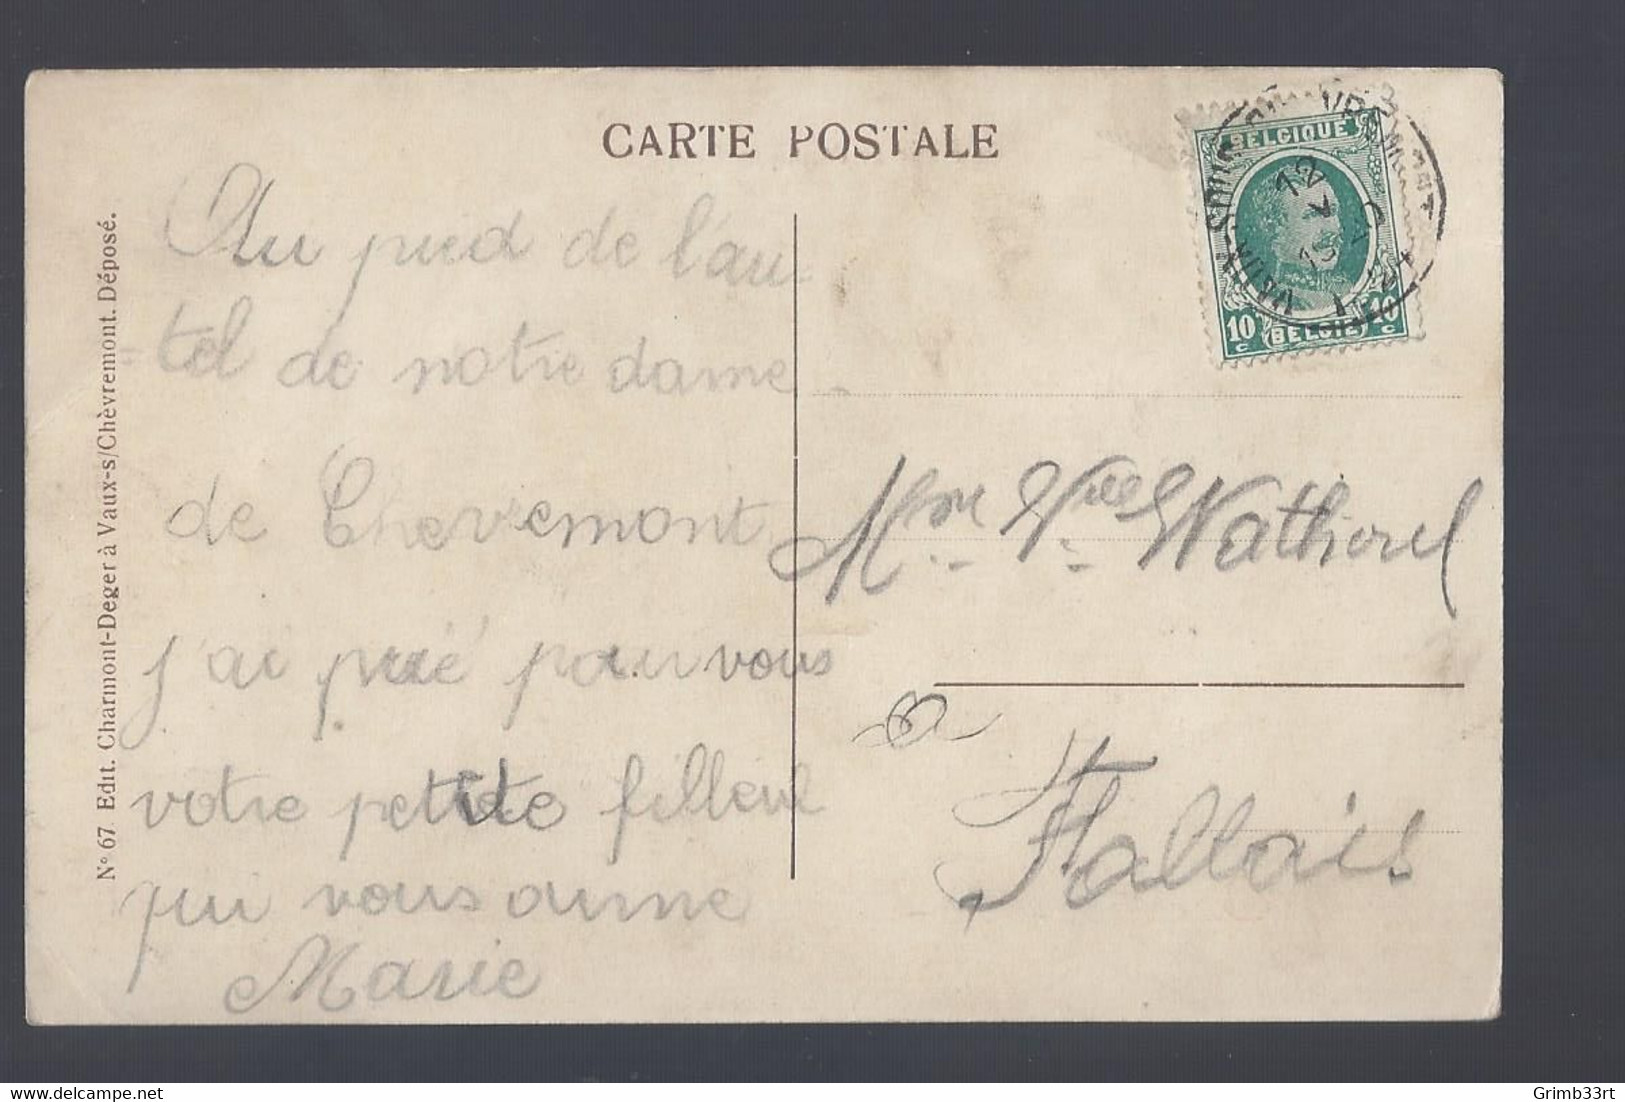 CARTE POSTALE
Au pied de l'au
=tel de notre dame
de Chevremont
j'ai prié pour vous
votre petite filleul
qui vous aime
Marie
N° 67 Edit. Charmont-Deger à Vaux-s/Chèvremont. Déposé.
BELGIQUE
10 c BELGIË 10 c
VAUX-SOUS-CHÈVREMONT
Mme Vve
à
Fallais
Grimb33rt